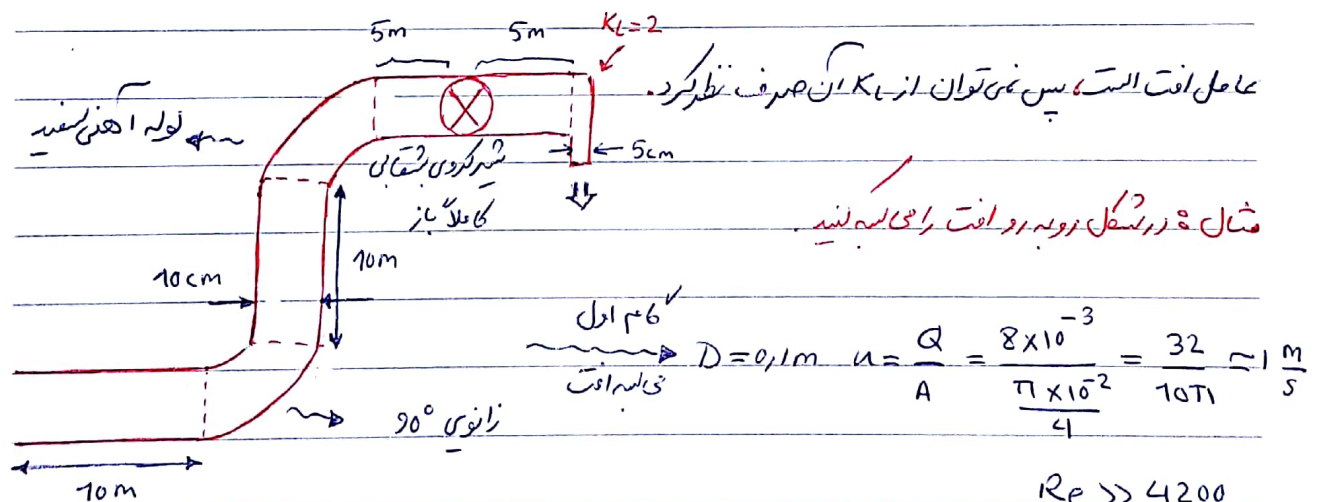 5m 5m KL=2
عامل افت است، پس نمی‌توان از KL آن صرف نظر کرد.
لوله آهنی سفید
شیر کروی بشقابی
کاملاً باز
5cm
مثال: در شکل روبه رو افت را محاسبه کنید.
10cm
10m
گام اول
محاسبه افت
D = 0,1m u = Q/A = 8×10^-3 / (π×10^-2 / 4) = 32/10π ≈ 1 m/s
زانویی 90°
10m
Re >> 4200